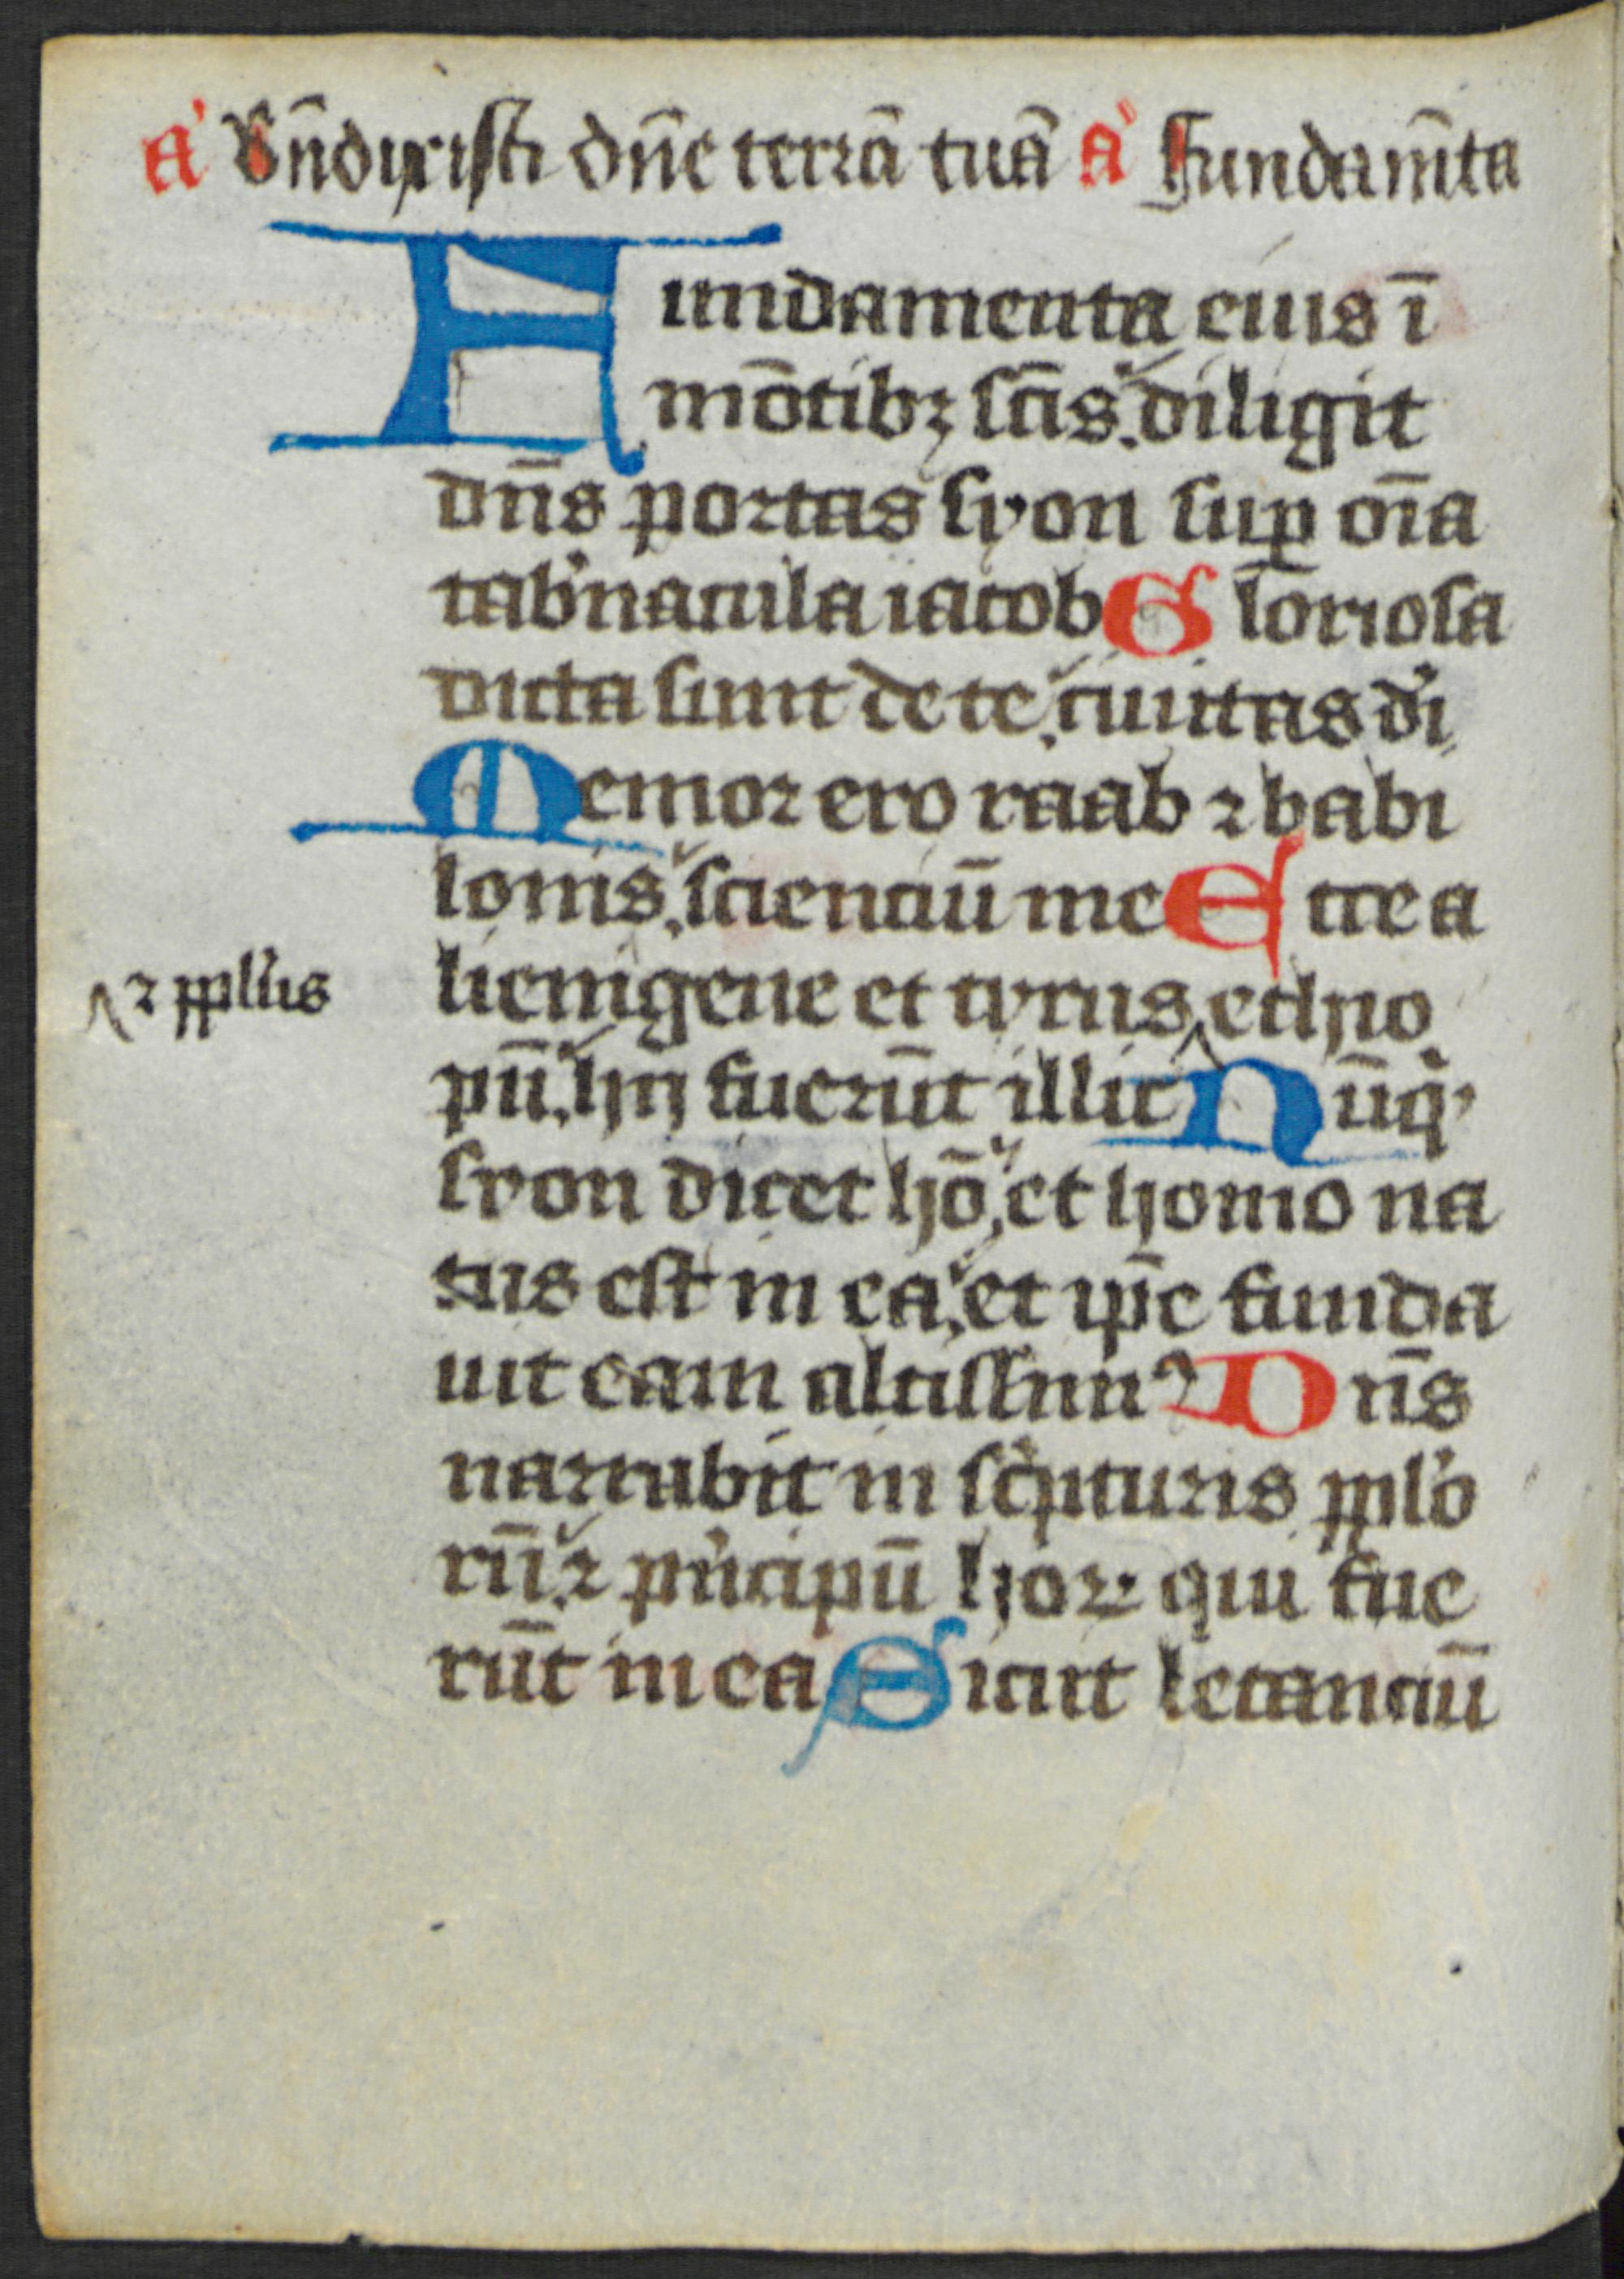 a' Bn̄dixisti dn̄e terrā tuā a' Fundam̄ta
Fundamenta eius ī
mōtibꝫ sc̄is. diligit
dn̄s portas syon suꝑ oīa
tab'nacula iacob Gloriosa
dicta sunt de te. ciuitas d'i
Memor ero raab ⁊ babi
lonis. scienciū me Ecce a
⁊ ppl'us
lienigene et tyrus ethyo
pū. hij fuerūt illic Nūq'
syon dicet hō. et homo na
tus est in ea. et ip̄e funda
uit eam altissimꝰ Dn̄s
narrabit in sc'pturis pplo
rū. ⁊ pn'cipū hoꝝ qui fue
rūt in ea Sicut letanciū